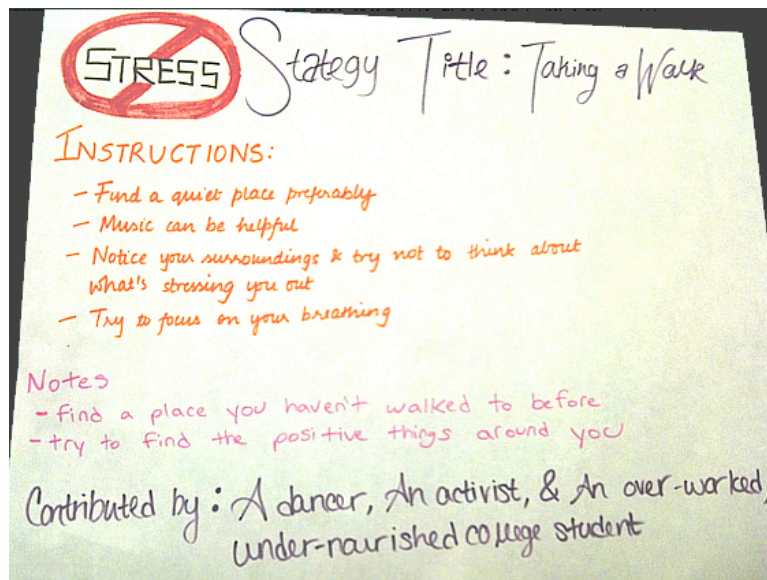 STRESS Stategy Title: Taking a Walk
INSTRUCTIONS:
- Find a quiet place preferably
- Music can be helpful
- Notice your surroundings & try not to think about
what's stressing you out
- Try to focus on your breathing
Notes
- find a place you haven't walked to before
- try to find the positive things around you
Contributed by: A dancer, An activist, & An over-worked,
under-nourished college student